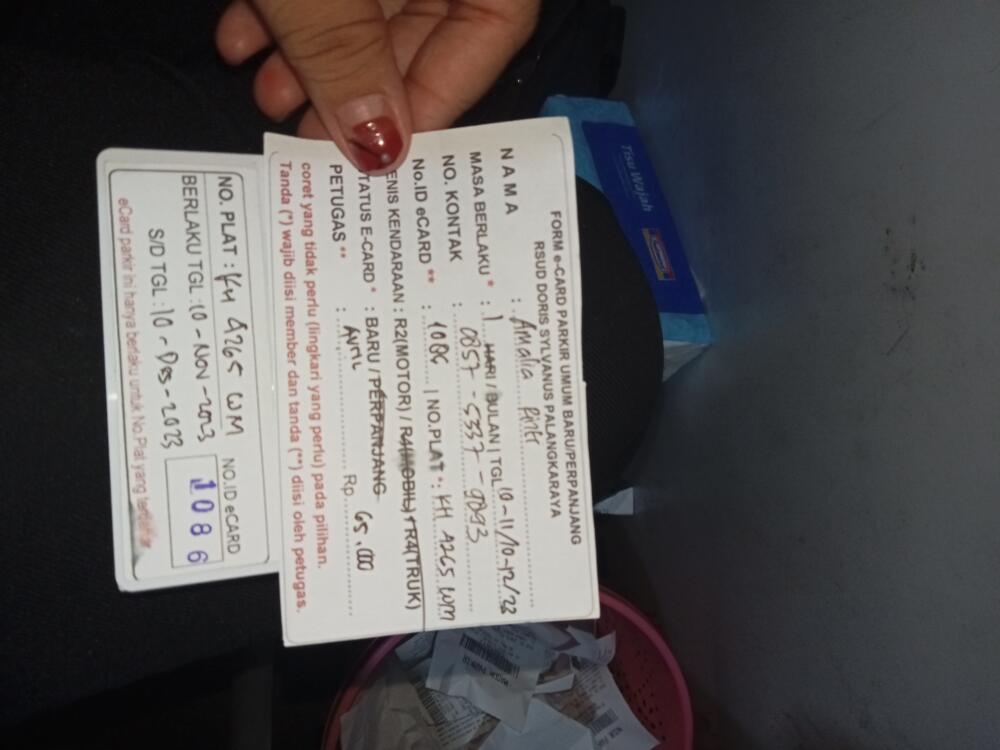 FORM e-CARD PARKIR UMUM BARU/PERPANJANG
RSUD DORIS SYLVANUS PALANGKARAYA
N A M A : Amalia
MASA BERLAKU * : 1 HARI / BULAN | TGL 10-11/10-12/23
NO. KONTAK : 0857-5337-9093
No.ID eCARD ** : 1086 | NO.PLAT *: KH 4265 WM
ENIS KENDARAAN : R2(MOTOR) / R4(MOBIL) / R4(TRUK)
TATUS E-CARD * : BARU / PERPANJANG
PETUGAS ** : Avril Rp. 65.000
coret yang tidak perlu (lingkari yang perlu) pada pilihan.
Tanda (*) wajib diisi member dan tanda (**) diisi oleh petugas.
NO. PLAT : KH 4265 WM NO.ID eCARD
BERLAKU TGL : 10-NOV-2023 1086
S/D TGL : 10-Des-2023
eCard parkir ini hanya berlaku untuk No.Plat yang
Tisu Wajah